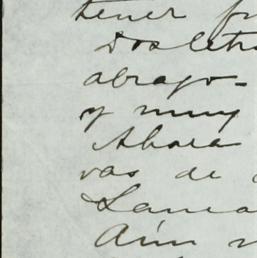 tener
Dos letr
abrazo-
y muy
Ahora
vas de
Lanca
Aún